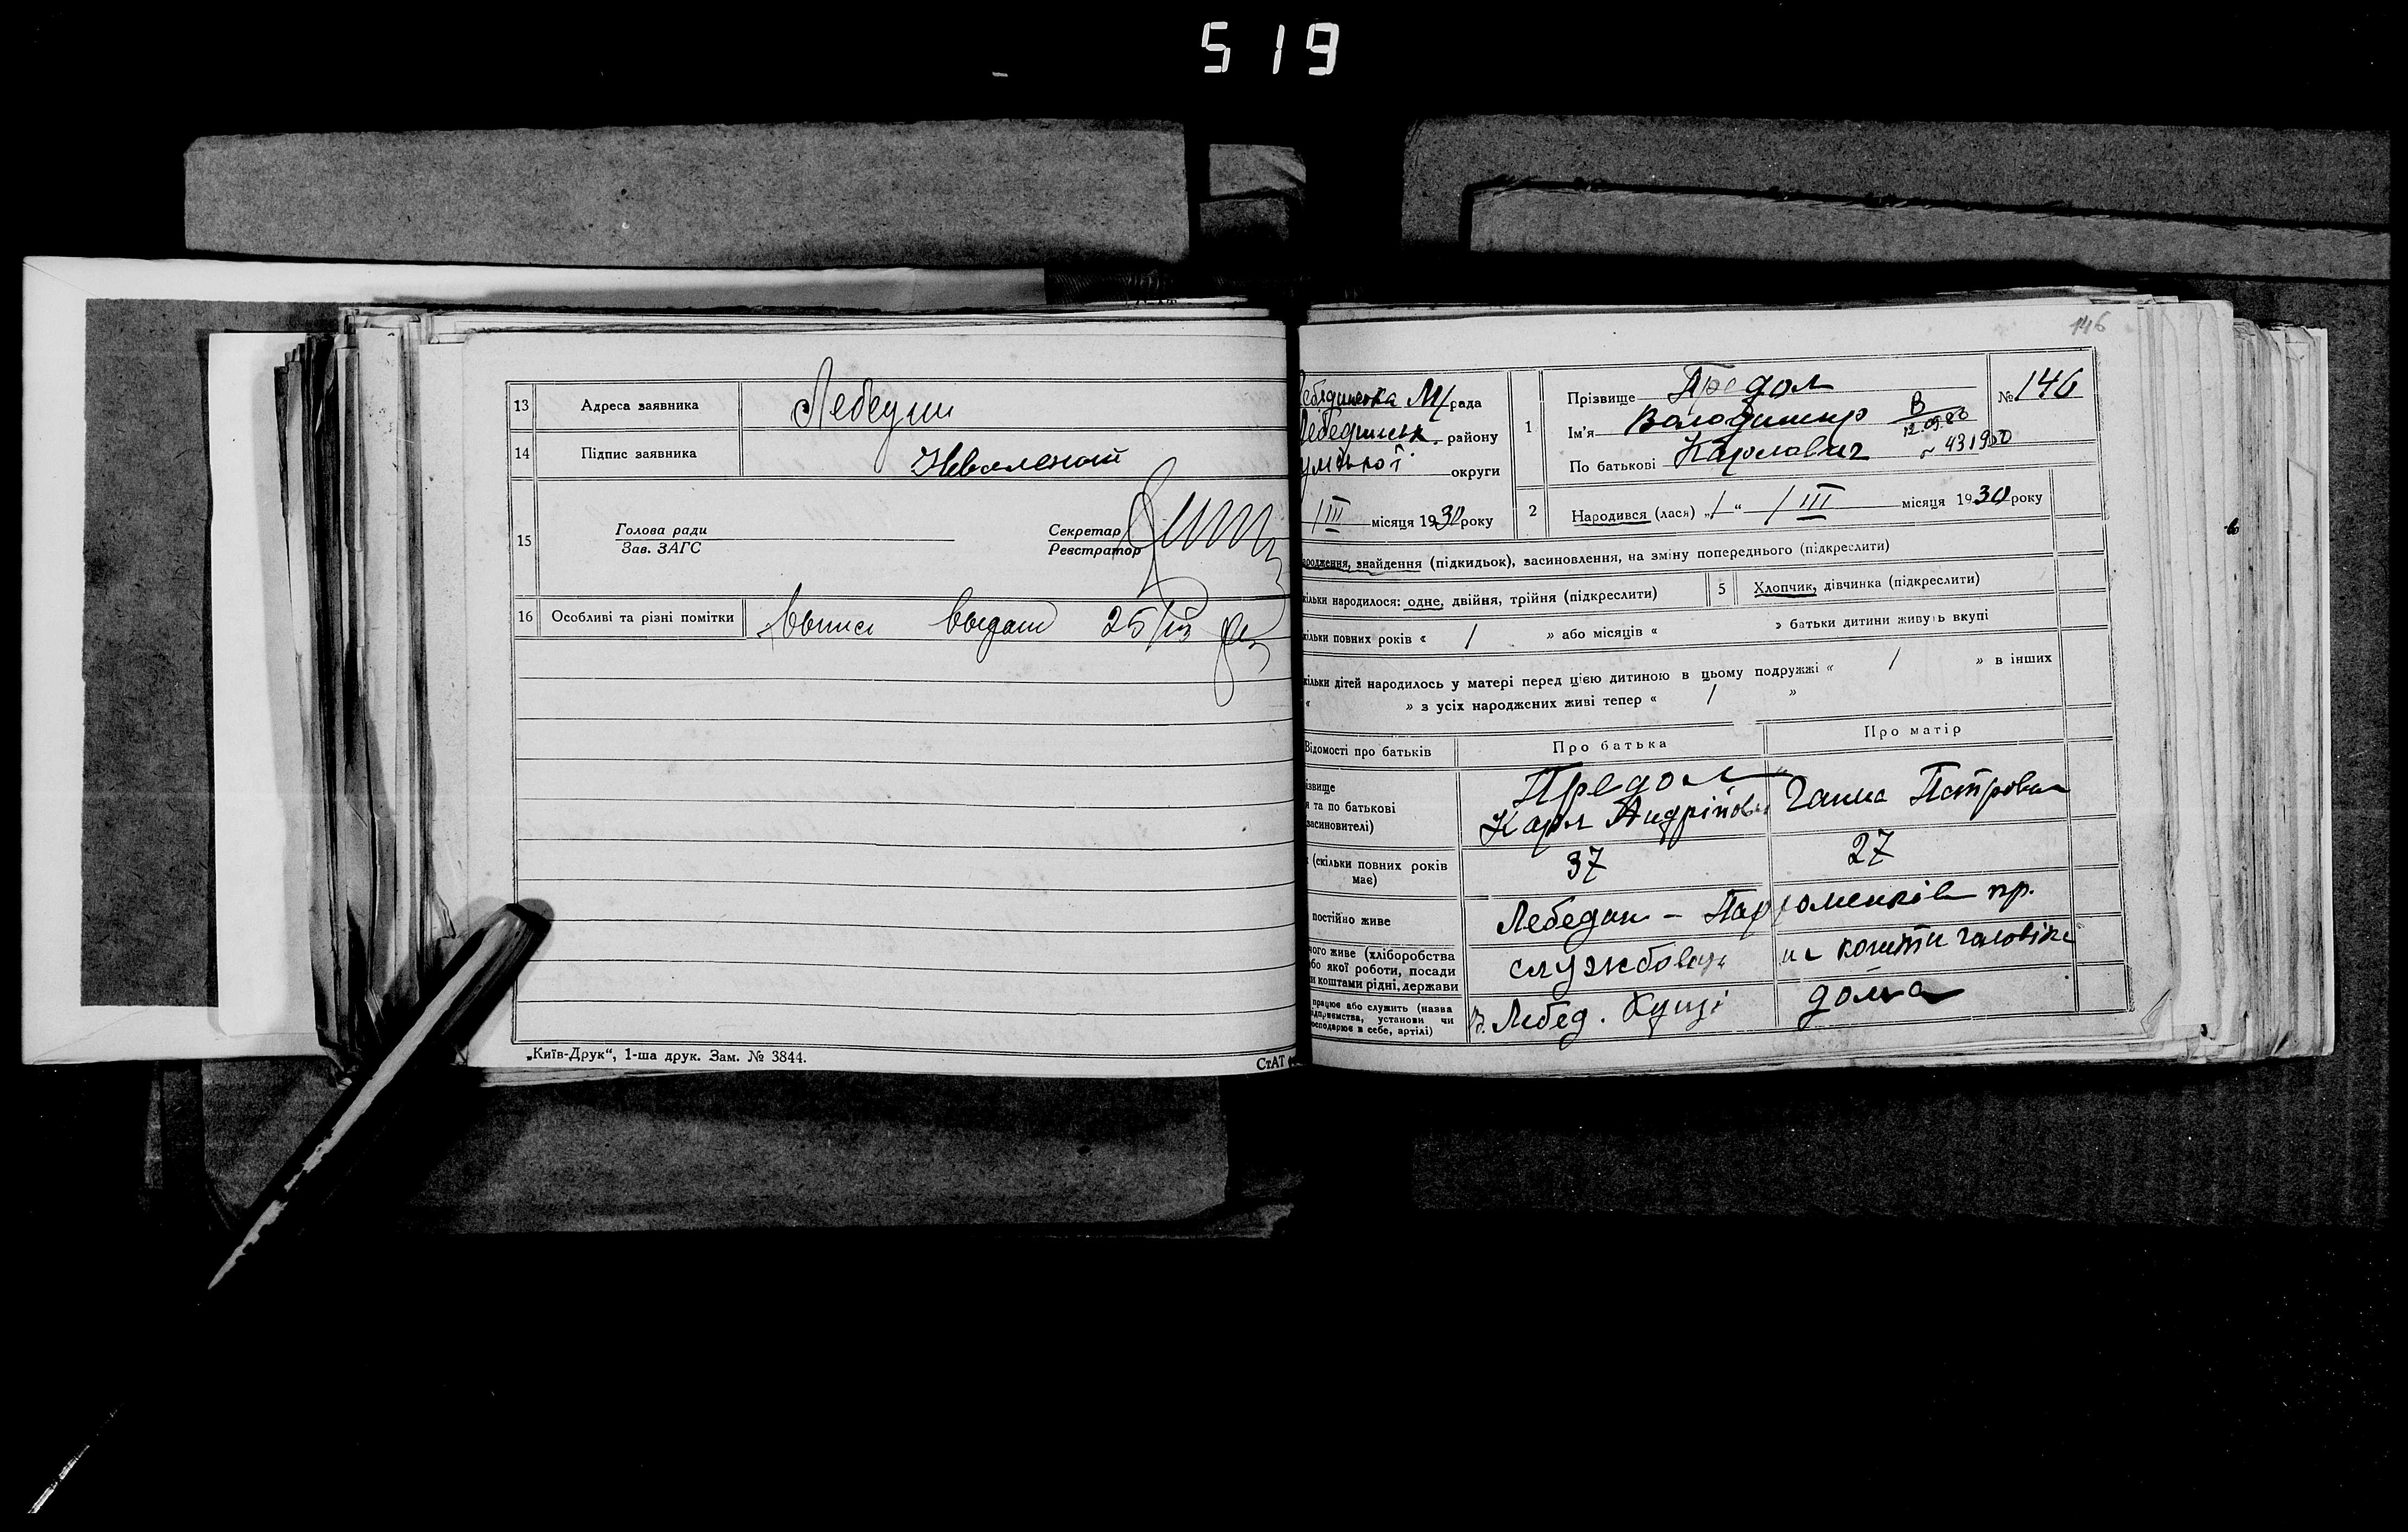 519
13 Адреса заявника Лебедин
14 Підпис заявника
15 Голова ради
Зав. ЗАГС
Секретар
Реєстратор
16 Особливі та різні помітки выдан 25/III
„Київ-Друк“, 1-ша друк. Зам. № 3844.
СтАТ
146
Лебединська М/рада
Лебединськ. району
умської округи
/III місяця 1930 року
1 Прізвище Предол
Ім'я Володимир
По батькові Карлович
В
12.09.80
431900
№ 146
2 Народився (лася) „1“ /III місяця 1930 року
ародження, знайдення (підкидьок), засиновлення, на зміну попереднього (підкреслити)
кільки народилося: одне, двійня, трійня (підкреслити)
5 Хлопчик, дівчинка (підкреслити)
кільки повних років « 1 » або місяців « » батьки дитини живуть вкупі
кільки дітей народилось у матері перед цією дитиною в цьому подружжі « 1 » в інших
« » з усіх народжених живі тепер « 1 »
Відомості про батьків
Про батька
Про матір
ізвище
я та по батькові
засиновителі)
Предол
Карл Андрійович
Ганна Петровна
(скільки повних років
має)
37
27
постійно живе
Лебедин - Пархоменків пр.
чого живе (хліборобства
бо якої роботи, посади
и коштами рідні, держави
службовець
на кошти чоловіка
працює або служить (назва
ідприємства, установи чи
осподарює в себе, артілі)
в. Лебед.
дома